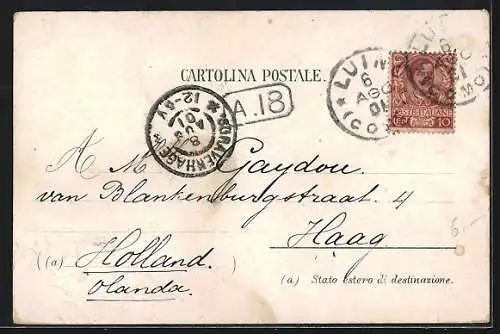 CARTOLINA POSTALE.
LUINO
6
AGO
01
(COMO)
POSTE ITALIANE
CENT. 10
A.18
'S GRAVENHAGE
12-6V
8 AUG
01
A M Gaydou.
van Blankenburgstraat 4
Haag
((a) Holland.
Olanda.
(a) Stato estero di destinazione.
6,-